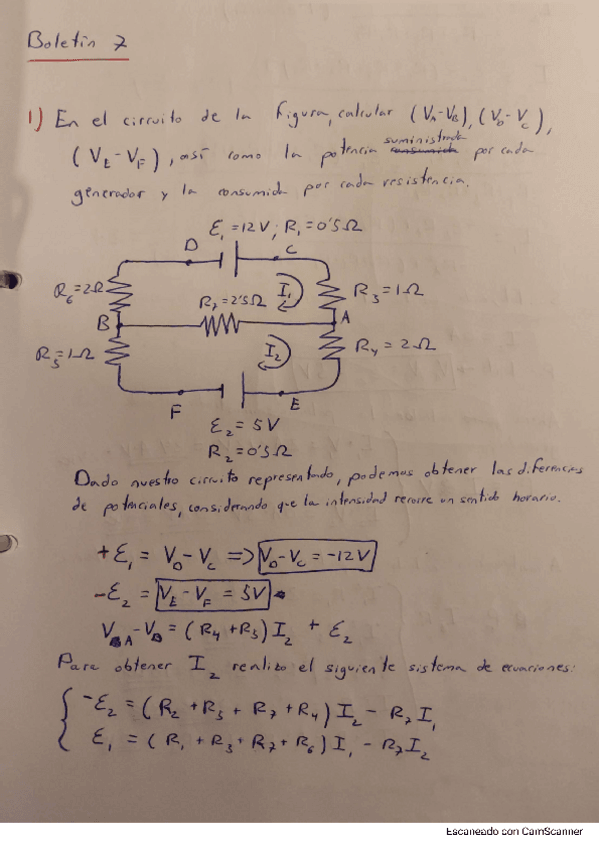 Boletín 7
1) En el circuito de la figura, calcular (VA-VB), (VD-VC),
(VE-VF), así como la potencia suministrada por cada
generador y la consumida por cada resistencia.
Ɛ1=12V; R1=0'5Ω
D
C
R6=2Ω
R7=2'5Ω
I1
R3=1Ω
B
A
R5=1Ω
I2
R4=2Ω
F
E
Ɛ2=5V
R2=0'5Ω
Dado nuestro circuito representado, podemos obtener las diferencias
de potenciales, considerando que la intensidad recorre un sentido horario.
+Ɛ1 = VD-VC => VD-VC = -12V
-Ɛ2 = VE-VF = 5V
VA-VB = (R4+R5)I2 + Ɛ2
Para obtener I2 realizo el siguiente sistema de ecuaciones:
-Ɛ2 = (R2+R5+R7+R4)I2 - R7I1
Ɛ1 = (R1+R3+R7+R6)I1 - R7I2
Escaneado con CamScanner